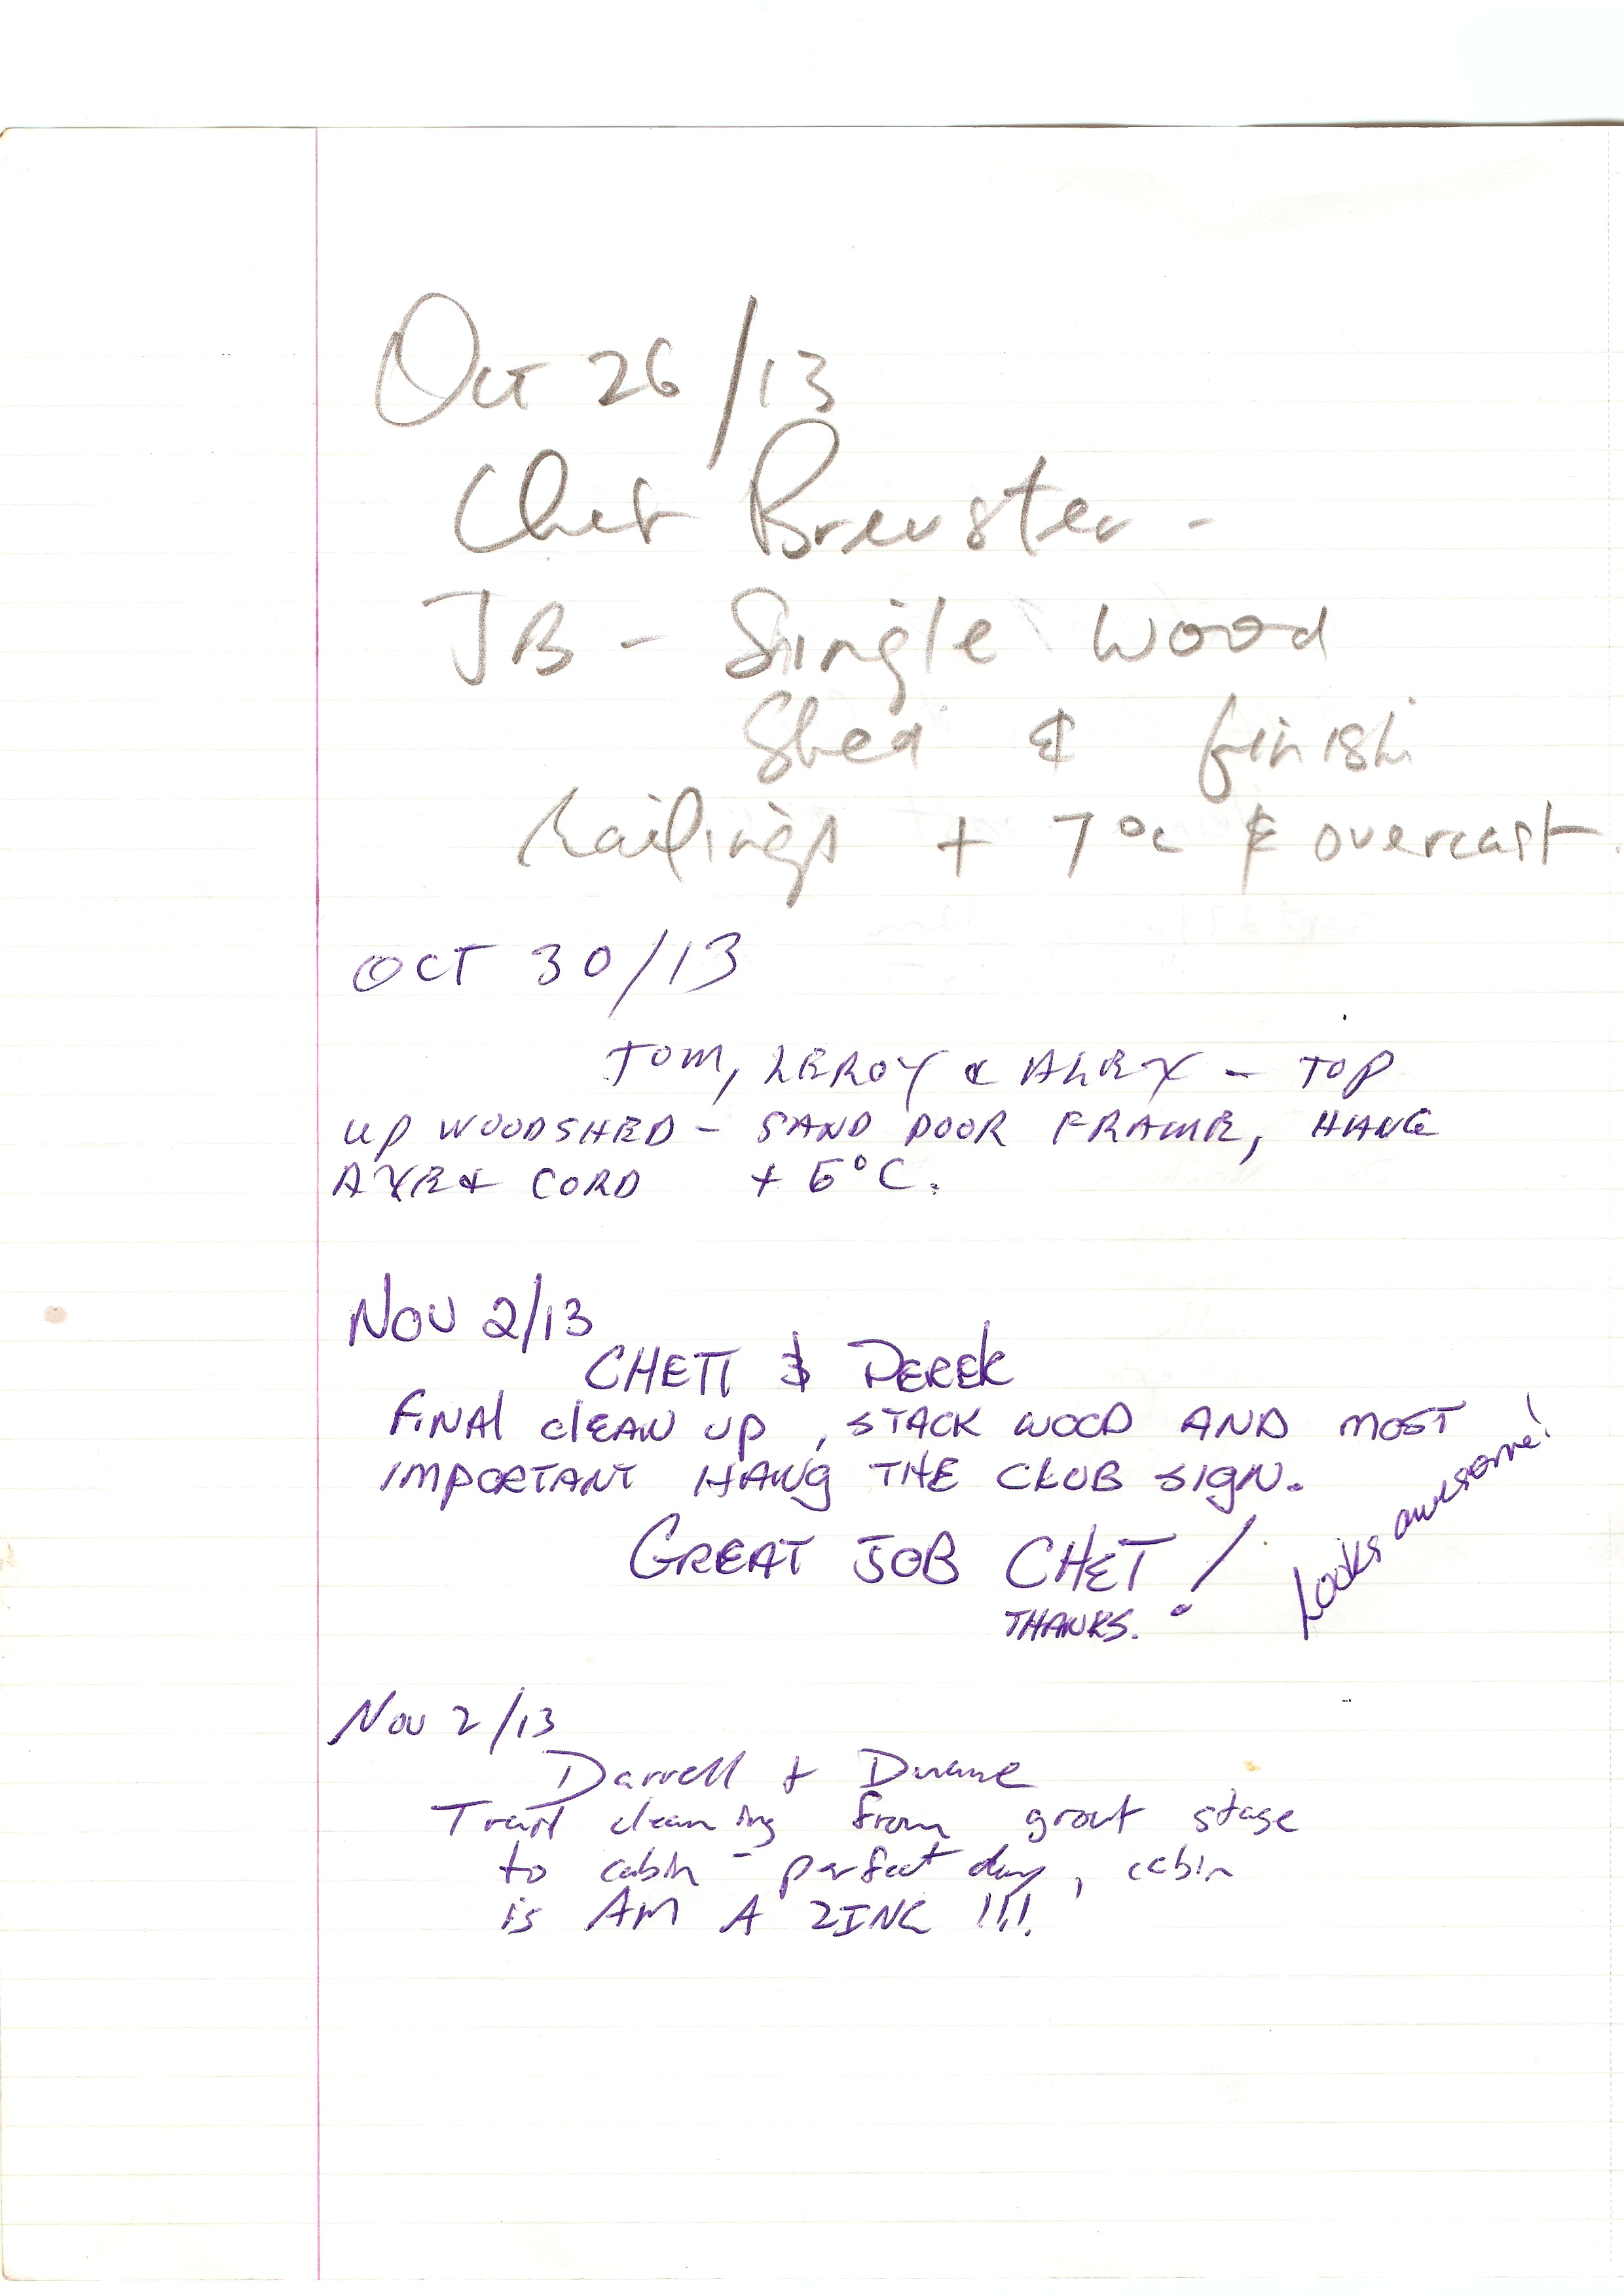 Oct 26/13
Chet Brewster -
JB - Shingle wood
Shed & finish
railings + 7°c & overcast.
OCT 30/13
TOM, LEROY & ALEX - TOP
UP WOODSHED - SAND DOOR FRAME, HANG
AXE & CORD + 6°C.
NOV 2/13
CHETT & DEREK
FINAL CLEAN UP, STACK WOOD AND MOST
IMPORTANT HANG THE CLUB SIGN.
GREAT JOB CHET!
THANKS.
Looks awesome!
Nov 2/13
Darrell + Duane
Trail cleaning from grout stage
to cabin - perfect day, cabin
is AM A ZING !!!